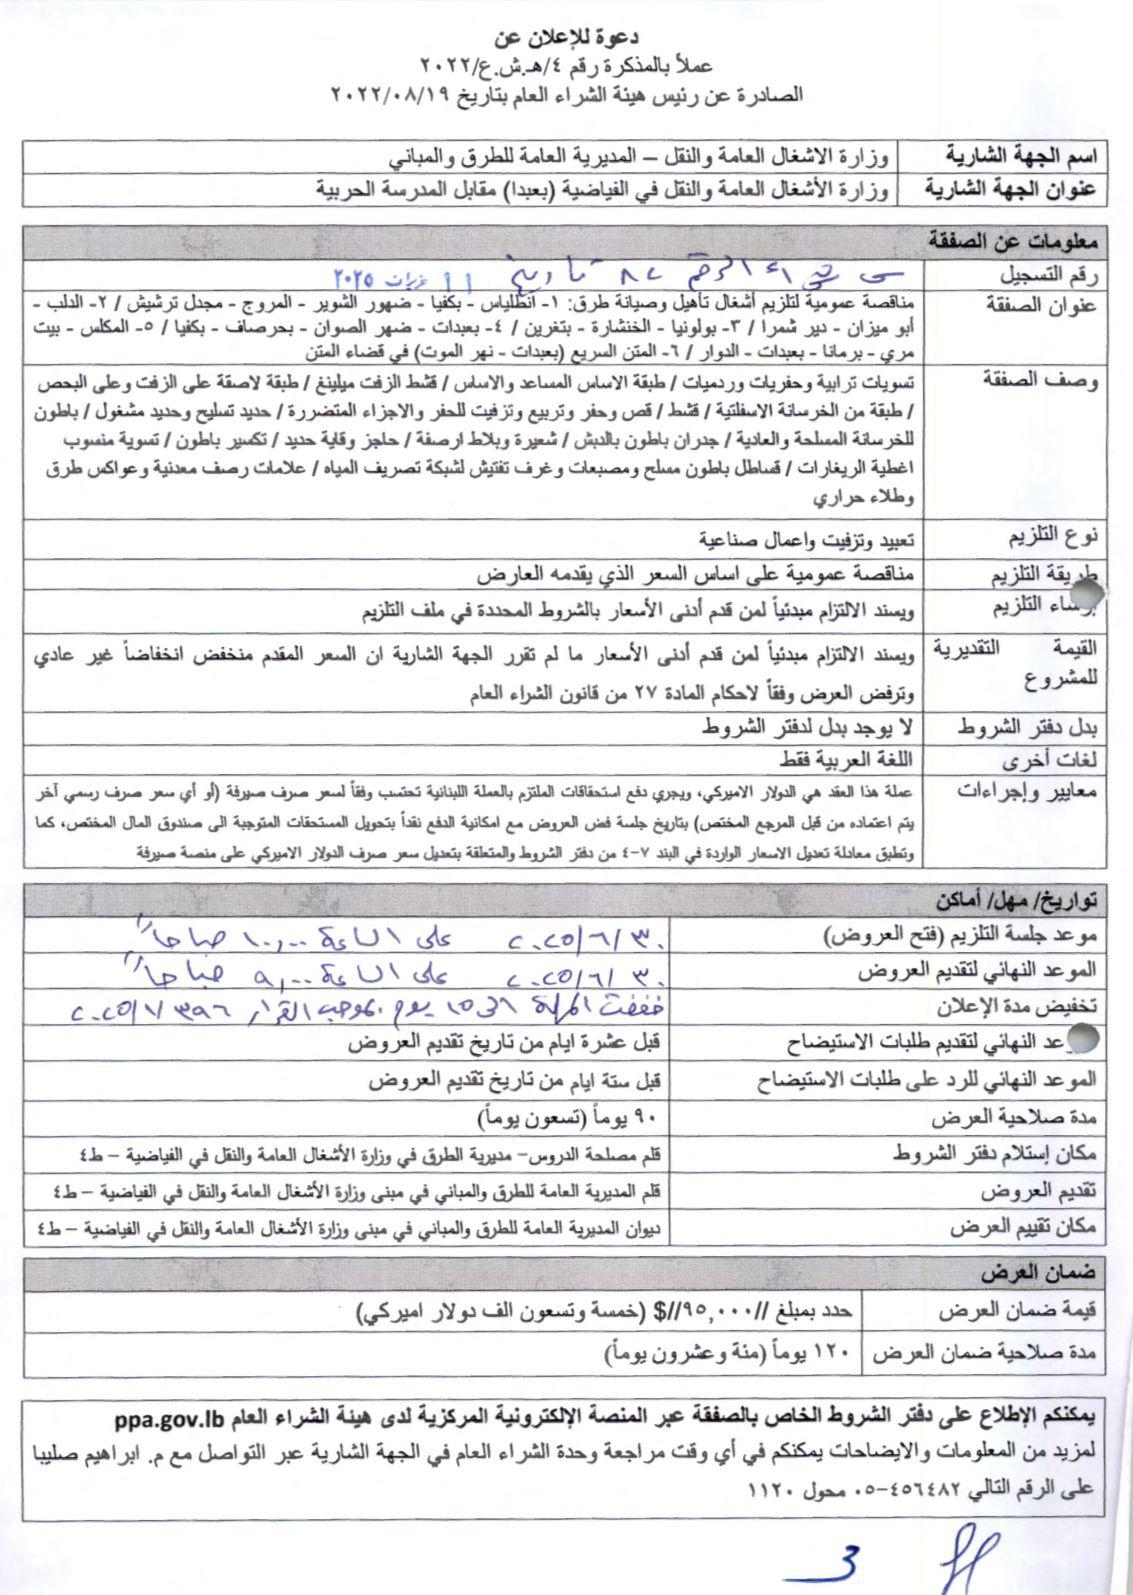 دعوة للإعلان عن
عملاً بالمذكرة رقم ٤/هـ.ش.ع/٢٠٢٢
الصادرة عن رئيس هيئة الشراء العام بتاريخ ٢٠٢٢/٠٨/١٩
اسم الجهة الشارية وزارة الاشغال العامة والنقل – المديرية العامة للطرق والمباني
عنوان الجهة الشارية وزارة الأشغال العامة والنقل في الفياضية (بعبدا) مقابل المدرسة الحربية
معلومات عن الصفقة
رقم التسجيل الرقم ٨٢ تاريخ ١١ حزيران ٢٠٢٥
عنوان الصفقة مناقصة عمومية لتلزيم أشغال تأهيل وصيانة طرق: ١- انطلياس - بكفيا - ضهور الشوير - المروج - مجدل ترشيش / ٢- الدلب -
أبو ميزان - دير شمرا / ٣- بولونيا - الخنشارة - بتغرين / ٤- بعبدات - ضهر الصوان - بحرصاف - بكفيا / ٥- المكلس - بيت
مري - برمانا - بعبدات - الدوار / ٦- المتن السريع (بعبدات - نهر الموت) في قضاء المتن
وصف الصفقة تسويات ترابية وحفريات وردميات / طبقة الاساس المساعد والاساس / قشط الزفت ميلينغ / طبقة لاصقة على الزفت وعلى البحص
/ طبقة من الخرسانة الاسفلتية / قشط / قص وحفر وتربيع وتزفيت للحفر والاجزاء المتضررة / حديد تسليح وحديد مشغول / باطون
للخرسانة المسلحة والعادية / جدران باطون بالدبش / شعيرة وبلاط ارصفة / حاجز وقاية حديد / تكسير باطون / تسوية منسوب
اغطية الريغارات / قساطل باطون مسلح ومصبعات وغرف تفتيش لشبكة تصريف المياه / علامات رصف معدنية وعواكس طرق
وطلاء حراري
نوع التلزيم تعبيد وتزفيت واعمال صناعية
طريقة التلزيم مناقصة عمومية على اساس السعر الذي يقدمه العارض
التلزيم ويسند الالتزام مبدئياً لمن قدم أدنى الأسعار بالشروط المحددة في ملف التلزيم
القيمة التقديرية ويسند الالتزام مبدئياً لمن قدم أدنى الأسعار ما لم تقرر الجهة الشارية ان السعر المقدم منخفض انخفاضاً غير عادي
للمشروع وترفض العرض وفقاً لاحكام المادة ٢٧ من قانون الشراء العام
بدل دفتر الشروط لا يوجد بدل لدفتر الشروط
لغات أخرى اللغة العربية فقط
معايير وإجراءات عملة هذا العقد هي الدولار الاميركي، ويجري دفع استحقاقات الملتزم بالعملة اللبنانية تحتسب وفقاً لسعر صرف صيرفة (أو أي سعر صرف رسمي آخر
يتم اعتماده من قبل المرجع المختص) بتاريخ جلسة فض العروض مع امكانية الدفع نقداً بتحويل المستحقات المتوجبة الى صندوق المال المختص، كما
وتطبق معادلة تعديل الاسعار الواردة في البند ٧-٤ من دفتر الشروط والمتعلقة بتعديل سعر صرف الدولار الاميركي على منصة صيرفة
تواريخ/ مهل/ أماكن
موعد جلسة التلزيم (فتح العروض) ٢٠٢٥/٦/٣٠ على الساعة ١٠,٠٠ صباحاً
الموعد النهائي لتقديم العروض ٢٠٢٥/٦/٣٠ على الساعة ٩,٠٠ صباحاً
تخفيض مدة الإعلان خفضت المهلة الى ١٥ يوم بموجب القرار ٣٩٦/٢٠٢٥
النهائي لتقديم طلبات الاستيضاح قبل عشرة ايام من تاريخ تقديم العروض
الموعد النهائي للرد على طلبات الاستيضاح قبل ستة ايام من تاريخ تقديم العروض
مدة صلاحية العرض ٩٠ يوماً (تسعون يوماً)
مكان إستلام دفتر الشروط قلم مصلحة الدروس- مديرية الطرق في وزارة الأشغال العامة والنقل في الفياضية – ط٤
تقديم العروض قلم المديرية العامة للطرق والمباني في مبنى وزارة الأشغال العامة والنقل في الفياضية – ط٤
مكان تقييم العرض ديوان المديرية العامة للطرق والمباني في مبنى وزارة الأشغال العامة والنقل في الفياضية – ط٤
ضمان العرض
قيمة ضمان العرض حدد بمبلغ //٩٥,٠٠٠//$ (خمسة وتسعون الف دولار اميركي)
مدة صلاحية ضمان العرض ١٢٠ يوماً (مئة وعشرون يوماً)
يمكنكم الإطلاع على دفتر الشروط الخاص بالصفقة عبر المنصة الإلكترونية المركزية لدى هيئة الشراء العام ppa.gov.lb
لمزيد من المعلومات والايضاحات يمكنكم في أي وقت مراجعة وحدة الشراء العام في الجهة الشارية عبر التواصل مع م. ابراهيم صليبا
على الرقم التالي ٤٥٦٤٨٢-٠٥ محول ١١٢٠
3